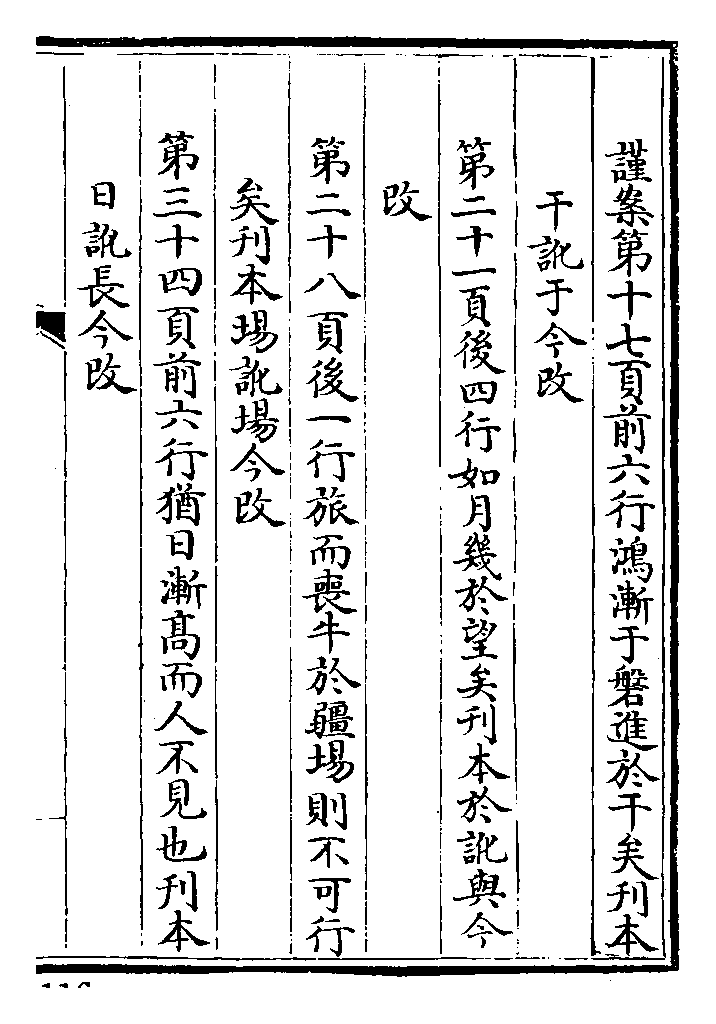 謹案第十七頁前六行鴻漸于磐進於干矣刊本
干訛于今改
第二十一頁後四行如月幾於望矣刊本於訛與今
改
第二十八頁後一行旅而喪牛於疆場則不可行
矣刊本埸訛場今改
第三十四頁前六行猶日漸高而人不見也刊本
日訛長今改